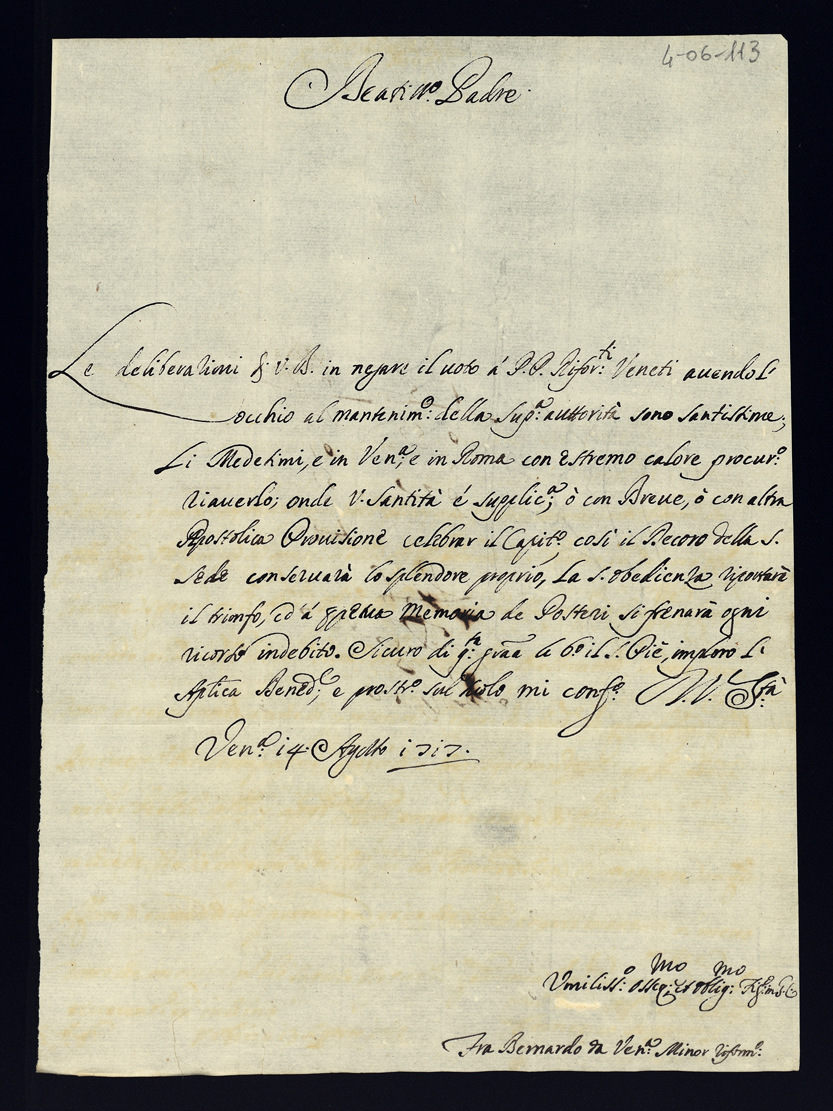 4-06-113
Beatiss.º Padre
Le deliberationi di V. B. in negare il voto a' P.P. Rifor:ti Veneti avendo l'
occhio al mantenim:º della sup:ª auttorità sono santissime;
Li Medesimi, e in Ven:ª, e in Roma con estremo calore procur:º
riaverlo; onde V. Santità é supplic:ª, ò con Breve, ò con altra
Apostolica Provisione celebrar il Capit:º, così il Decoro della S.
Sede conservarà lo splendore proprio, La S. obedienza riportarà
il trionfo, ed á perpetua Memoria de Posteri si frenarà ogni
ricorso indebito. Sicuro di q:ta graa le bº il S. Piè, imploro l'
Aptica Bened:e, e prost:º sul suolo mi conf:º D. V. Stà
Ven:ª 14. Agosto 1717.
Umiliss:º osseq:mo et oblig:mo
Fra Bernardo da Ven:ª Minor Reform:º